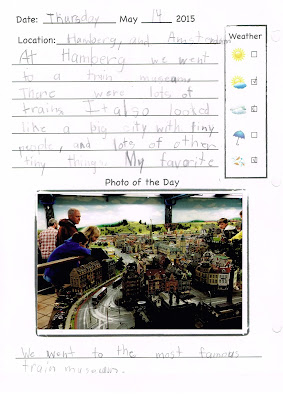 Date: Thursday May 14 2015
Location: Hamberg, and Amsterdam
Weather
At Hamberg we went
to a train museam.
There were lots of
trains. It also looked
like a big city with tiny
people, and lots of other
tiny things. My favorite
Photo of the Day
We went to the most famous
train museum.